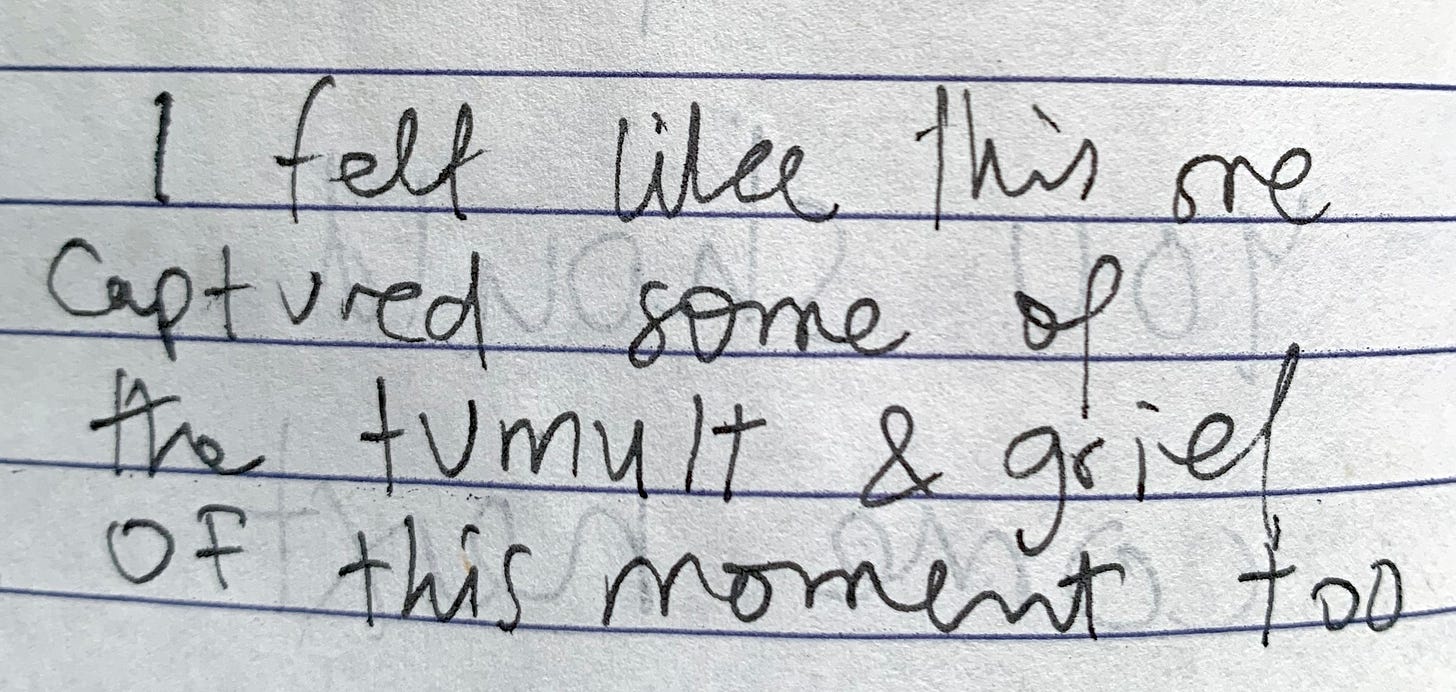 I felt like this one
captured some of
the tumult & grief
OF this moment too